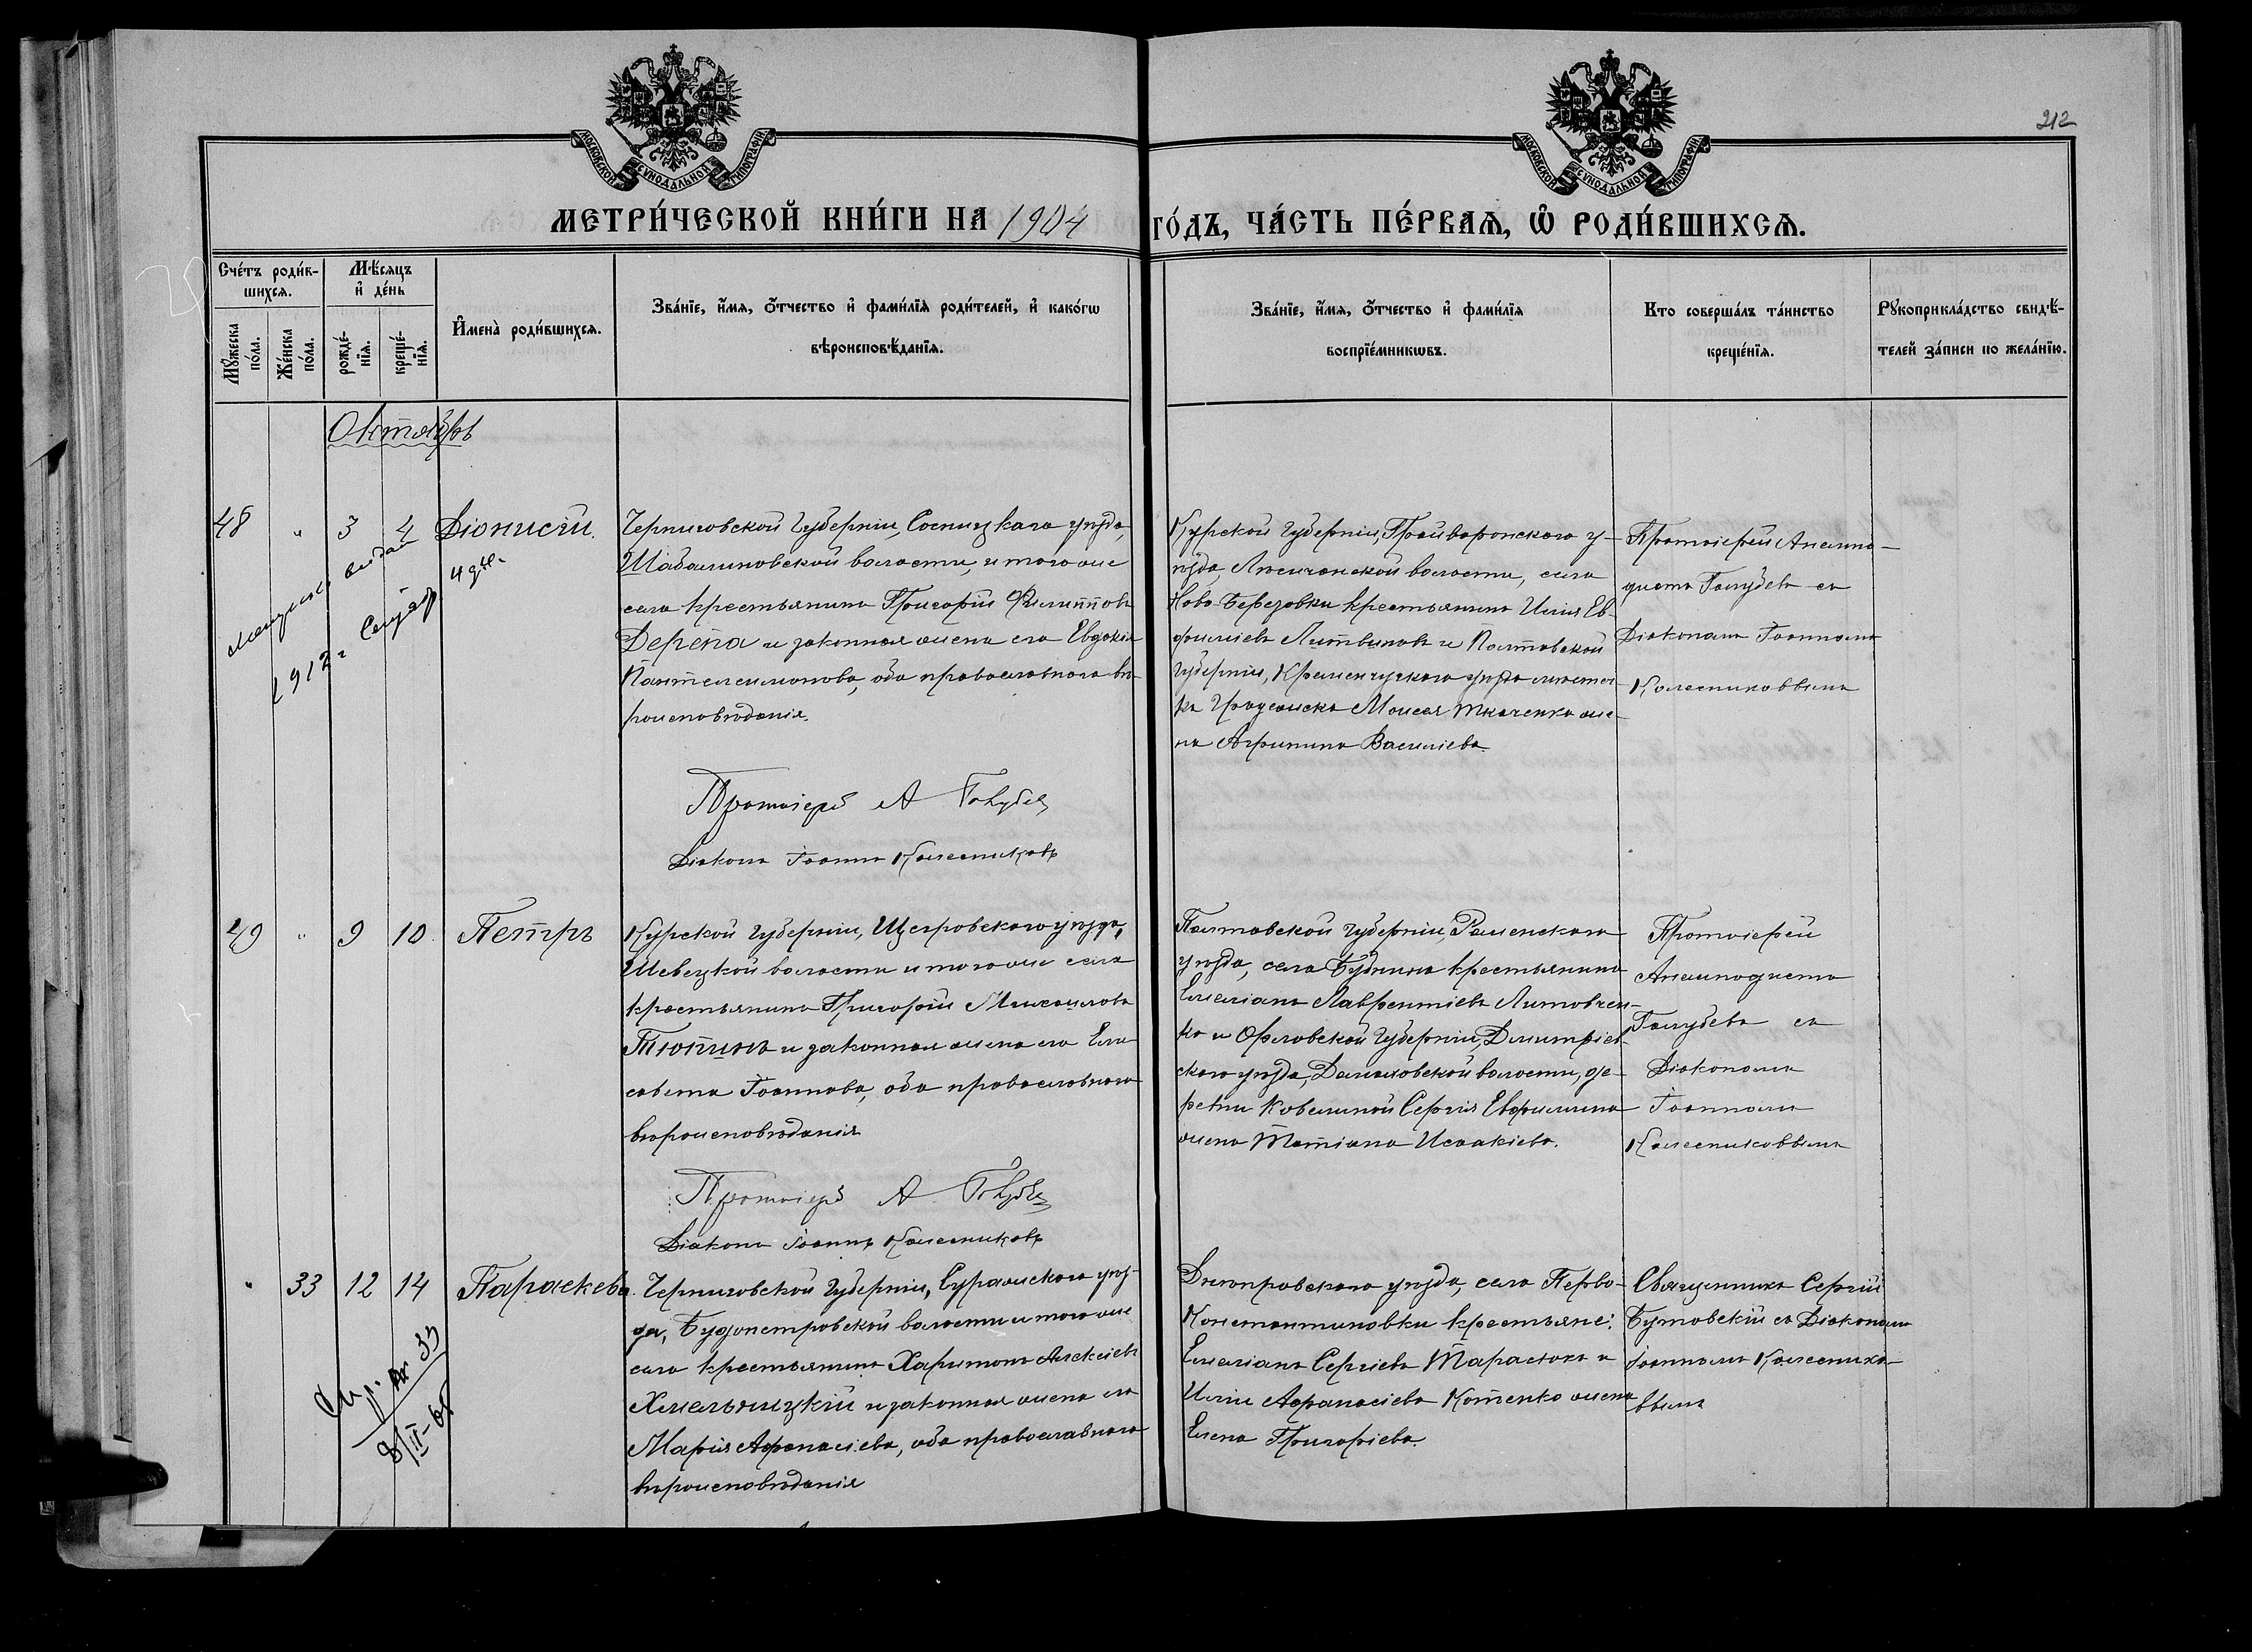 212
МОСКОВСКОЙ СѴНОДАЛЬНОЙ ТИПОГРАФІИ
МОСКОВСКОЙ СѴНОДАЛЬНОЙ ТИПОГРАФІИ
МЕТРИ́ЧЕСКОЙ КНИ́ГИ НА 1904 ГО́ДЪ, ЧА́СТЬ ПЕ́РВАѦ, Ѡ҆ РОДИ́ВШИХСѦ.
Сче́тъ роди́в-
шихсѧ.
Мꙋ́жеска
по́ла.
Же́нска
по́ла.
Мѣ́сѧцъ
и҆ де́нь
рожде́-
нїѧ.
креще́-
нїѧ.
И҆мена̀ роди́вшихсѧ.
Зва́нїе, и҆́мѧ, ѻ҆́тчество и҆ фами́лїѧ роди́телей, и҆ како́гѡ
вѣроисповѣ́данїѧ.
Зва́нїе, и҆́мѧ, ѻ҆́тчество и҆ фами́лїѧ
воспрїе́мникѡвъ.
Кто соверша́лъ та́инство
креще́нїѧ.
Рꙋкоприкла́дство свидѣ́-
телей за́писи по жела́нїю.
Октябрь
48 " 3 4 Діонисій.
1912 г.
Черниговской губерніи, Сосницкаго уѣзда,
Шабалиновской волости, и того же
села крестьянинъ Григорій Филипповъ
Дерепа и законная жена его Евдокія
Пантелеимонова, оба православнаго вѣ-
роисповѣданія.
Протоіерей А Голубев
Діаконъ Іоаннъ Колесниковъ
Курской губерніи, Грайворонскаго у-
ѣзда, волости, села
Ново-Березовки крестьянинъ Илія Ев-
фиміевъ Литвиновъ и Полтавской
губерніи, Кременчугскаго уѣзда мѣстеч-
ка Градижска Моисея Ткаченко же-
на Агрипина Василіева.
Протоіерей Анемпо-
дистъ Голубевъ съ
Діакономъ Іоанномъ
Колесниковвымъ
49 " 9 10 Петръ
Курской губерніи, Щигровскаго уѣзда,
Шевецкой волости и того же села
крестьянинъ Григорій Михаиловъ
Тюпинъ и законная жена его Ели-
савета Іоаннова, оба православнаго
вѣроисповѣданія
Протоіерей А Голубев
Діаконъ Іоаннъ Колесниковъ
Полтавской губерніи, Роменскаго
уѣзда, села крестьянинъ
Емеліанъ Лаврентіевъ Литовчен-
ко и Орловской губерніи, Димитріев-
скаго уѣзда, волости, де-
ревни Сергія Евфимина
жена Татіана Исаакіева.
Протоіерей
Анемподистъ
Голубевъ съ
Діакономъ
Іоанномъ
Колесниковвымъ
" 33 12 14 Параскева.
№ 33
8/II-65
Черниговской губерніи, Суражскаго уѣз-
да, волости и того же
села крестьянинъ Харитонъ Алексіевъ
Хмельницкій и законная жена его
Марія Афанасіева, оба православнаго
вѣроисповѣданія
Днѣпровскаго уѣзда, села Перво-
Константиновки крестьяне:
Емеліанъ Сергіевъ Тарасюкъ и
Иліи Афанасіева Котенко жена
Елена Григоріева.
Священникъ Сергій
Бутовскій съ Діакономъ
Іоанномъ Колеснико-
ввымъ